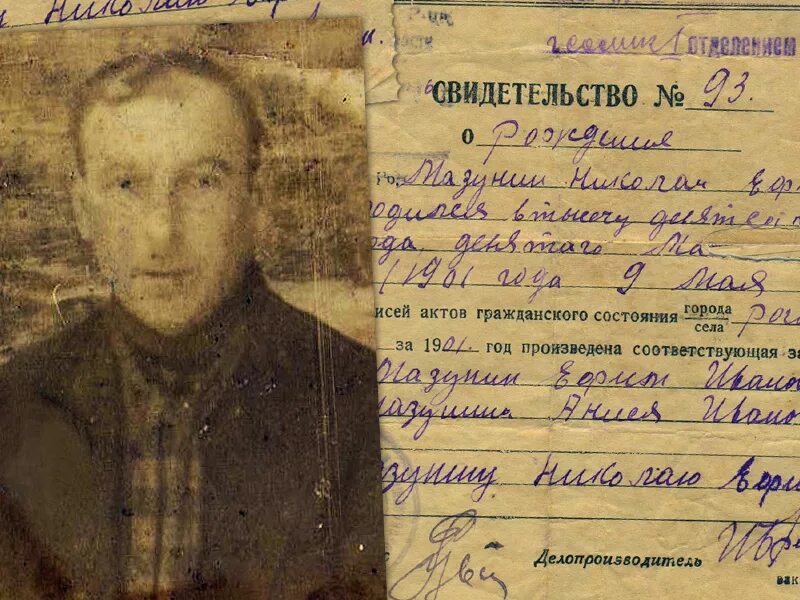 Николаю
отделением
СВИДЕТЕЛЬСТВО № 93.
о Рождении
Мазунин Николай Ефи
одился в тысячу девятсо
ода девятаго Ма
1901 года 9 мая
исей актов гражданского состояния города села
за 1901. год произведена соответствующая за
Мазунин Ефим Ивано
Мазунина Анисья Ивано
азунину Николаю Ефи
Делопроизводитель